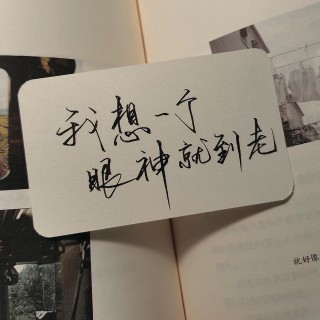 我想一个
眼神就到老
就好像